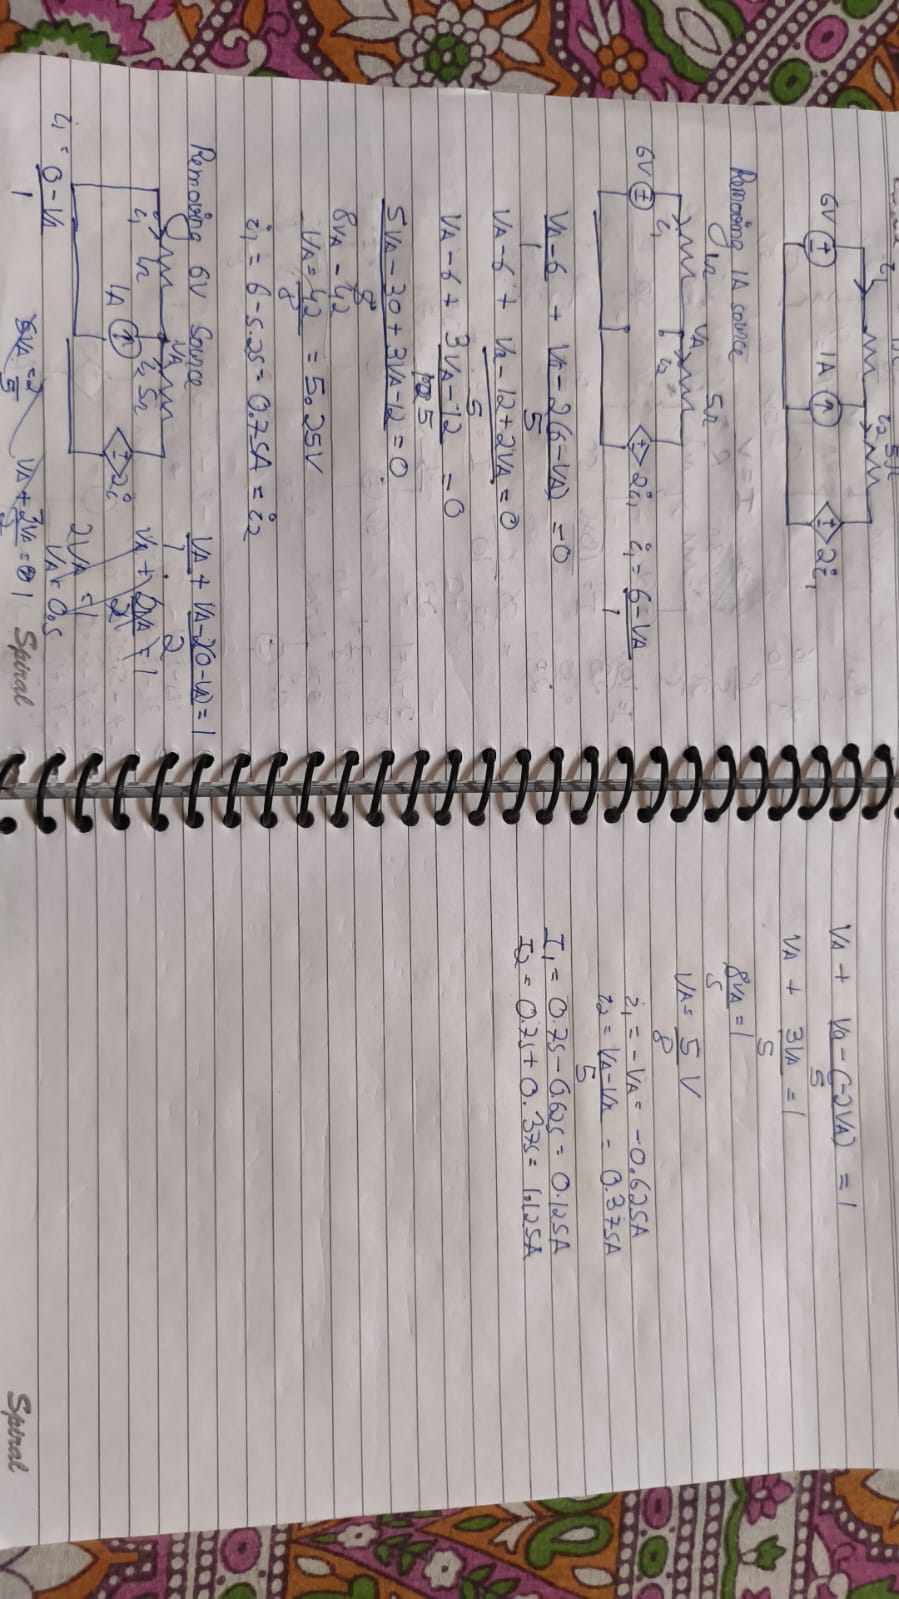 i₁ 1Ω i₂ 5Ω
6V 1A 2i₁
Removing 1A source
1Ω VA 5Ω
i₁ i₂
6V 2i₁ i₁ = 6-VA
1
VA-6 + Va-2(6-VA) = 0
1 5
VA-6 + Va-12+2VA = 0
5
VA-6 + 3VA-12 = 0
5
5VA-30+3VA-12 = 0
8
8VA - 42
VA = 42 = 5.25V
8
i₁ = 6-5.25 = 0.75A = i₂
Removing 6V Source
VA
i₁ 1Ω i₂ 5Ω
1A 2i
i₁ = 0-VA
1
VA + VA-2(0-VA) = 1
1 2
VA + 2VA = 1
2
2VA = 1
VA = 0.5
6VA = 2
5
VA + 3VA = 1
2
Spiral
VA + Va-(-2VA) = 1
5
VA + 3VA = 1
5
8VA = 1
5
VA = 5 V
8
i₁ = -VA = -0.625A
i₂ = VA-Vx = 0.375A
5
I₁ = 0.75-0.625 = 0.125A
I₂ = 0.75+0.375 = 1.125A
Spiral